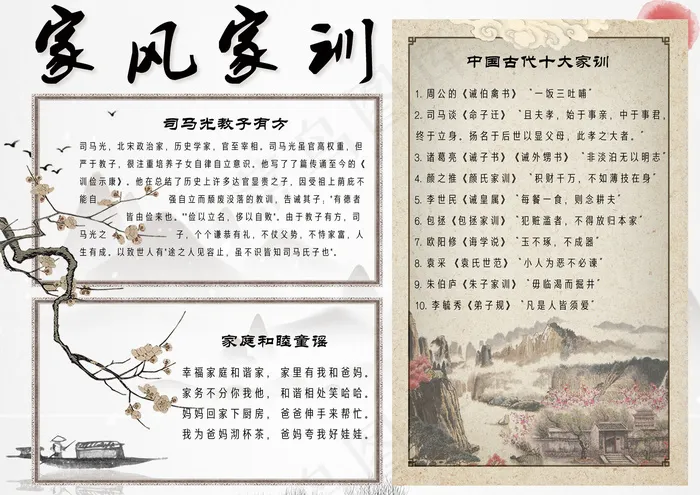 家风家训
司马光教子有方
司马光，北宋政治家，历史学家，官至宰相。司马光虽官高权重，但
严于教子，很注重培养子女自律自立意识。他写了了篇传诵至今的《
训俭示康》。他在总结了历史上许多达官显贵之子，因受祖上荫庇不
能自强自立而颓废没落的教训，告诫其子，"有德者
皆由俭来也。""俭以立名，侈以自败"。由于教子有方，司
马光之子，个个谦恭有礼，不仗父势，不恃家富，人
生有成。以致世人有"途之人见容止，虽不识皆知司马氏子也"。
家庭和睦童谣
幸福家庭和谐家，家里有我和爸妈。
家务不分你我他，和谐相处笑哈哈。
妈妈回家下厨房，爸爸伸手来帮忙。
我为爸妈沏杯茶，爸妈夸我好娃娃。
中国古代十大家训
1. 周公的《诫伯禽书》"一饭三吐哺"
2. 司马谈《命子迁》"且夫孝，始于事亲，中于事君，
终于立身。扬名于后世以显父母，此孝之大者。"
3. 诸葛亮《诫子书》《诫外甥书》"非淡泊无以明志"
4. 颜之推《颜氏家训》"积财千万，不如薄技在身"
5. 李世民《诫皇属》"每餐一食，则念耕夫"
6. 包拯《包拯家训》"犯赃滥者，不得放归本家"
7. 欧阳修《诲学说》"玉不琢，不成器"
8. 袁采《袁氏世范》"小人为恶不必谏"
9. 朱伯庐《朱子家训》"毋临渴而掘井"
10. 李毓秀《弟子规》"凡是人皆须爱"